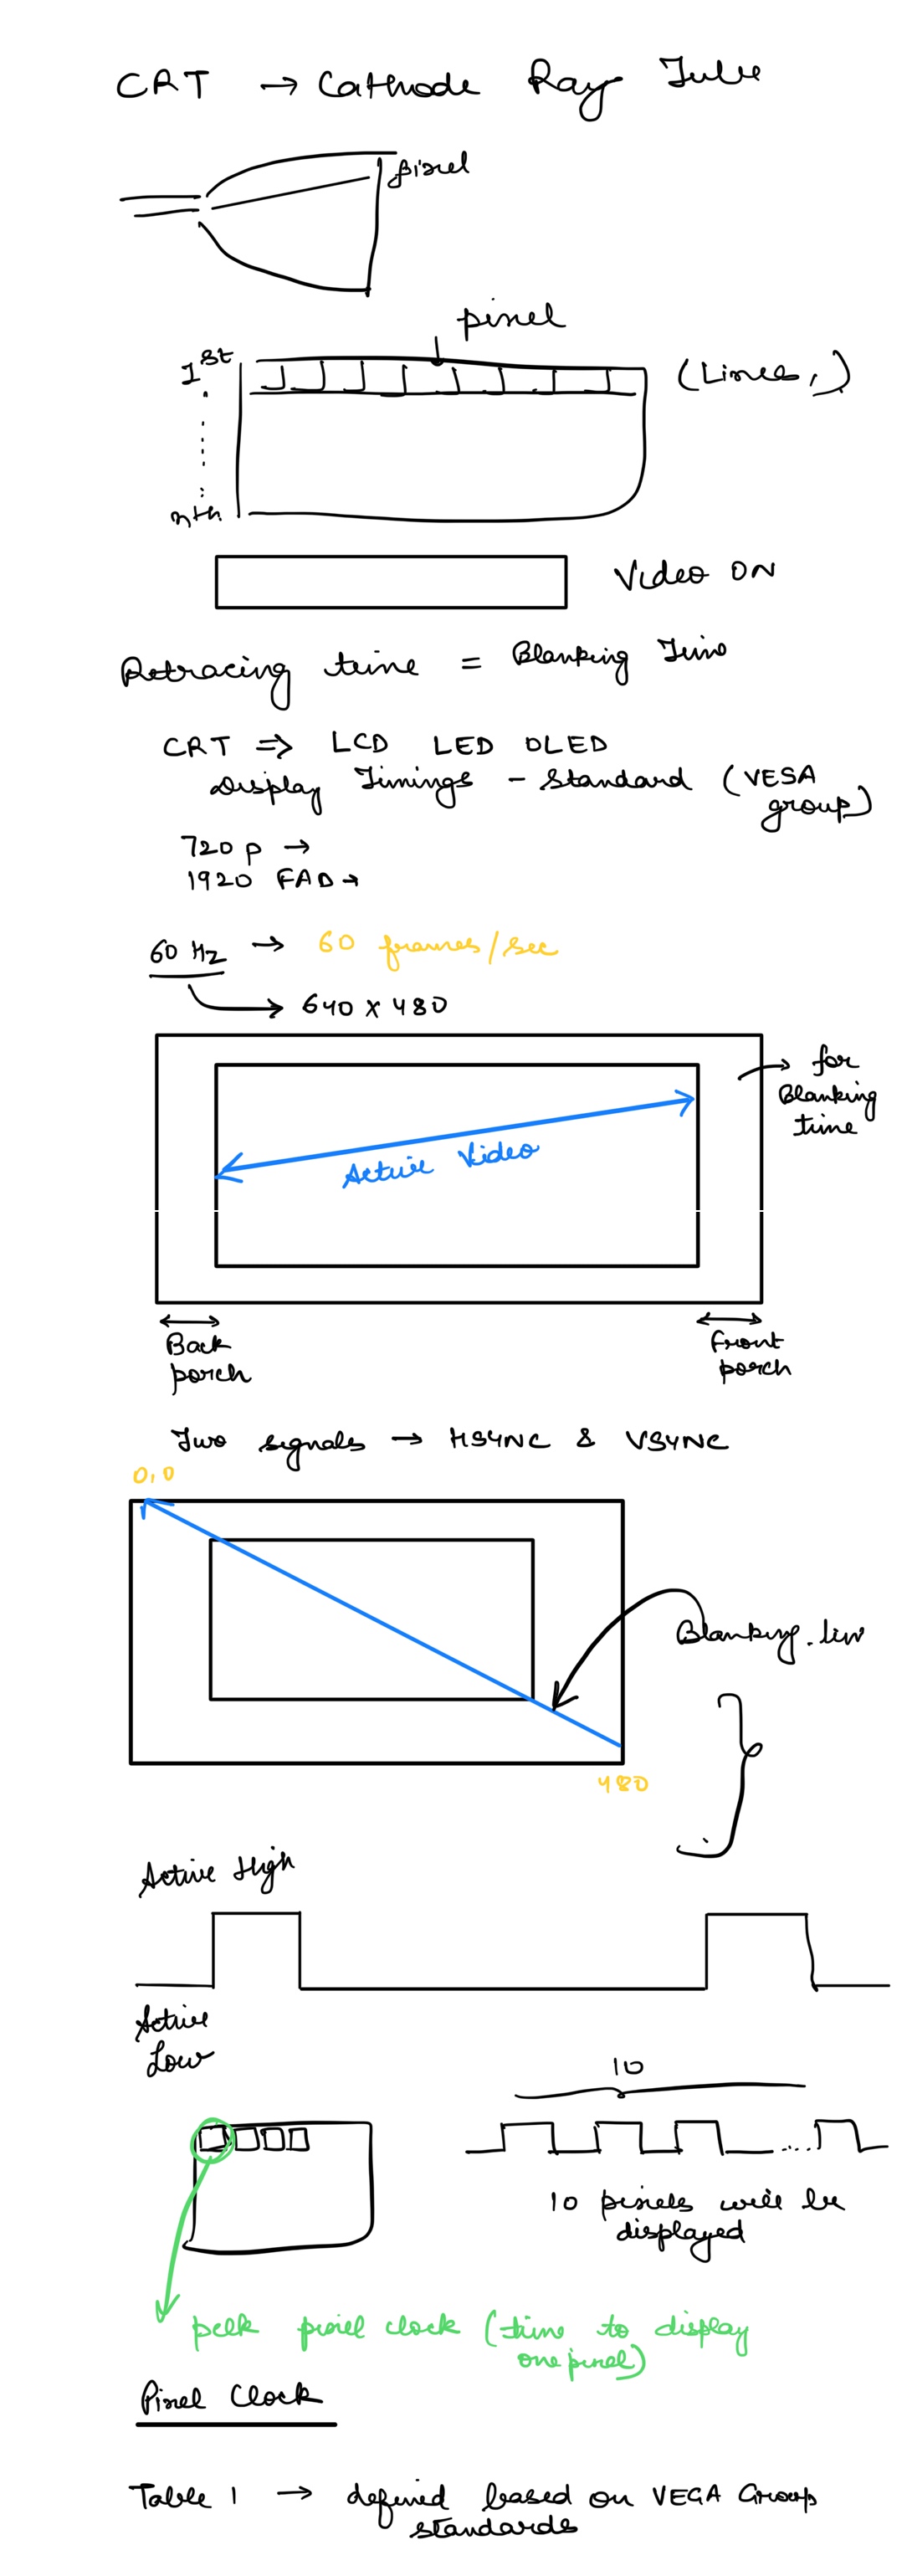 CRT → Cathode Ray Tube
pixel
pixel
1st
(Lines,)
nth
Video ON
Retracing time = Blanking Time
CRT ⇒ LCD LED OLED
Display Timings - Standard (VESA
group)
720 p →
1920 FAD →
60 Hz → 60 frames/sec
→ 640 x 480
for
Blanking
time
Active Video
Back
porch
Front
porch
Two signals → HSYNC & VSYNC
0,0
Blanking.
480
Active High
Active
Low
10
10 pixels will be
displayed
pclk pixel clock (time to display
one pixel)
Pixel Clock
Table 1 → defined based on VEGA Group
standards